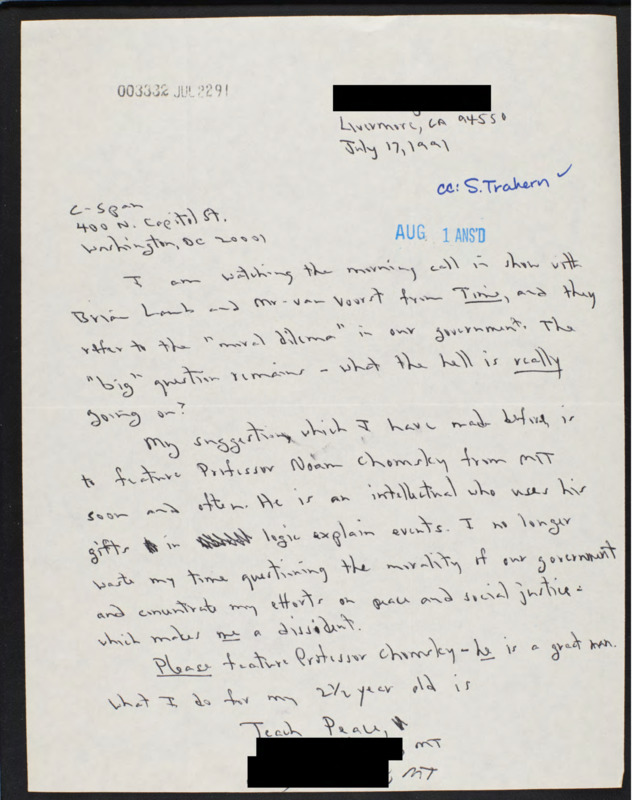 003332 JUL 22 91
Livermore, CA 94550
July 17, 1991
cc: S. Trahern ✓
C-Span
400 N. Capitol St.
Washington, DC 20001
AUG 1 ANS'D
I am watching the morning call in show with
Brian Lamb and Mr. van Voorst from Time, and they
refer to the "moral dilema" in our government. The
"big" question remains - what the hell is really
going on?
My suggestion, which I have made before, is
to feature Professor Noam Chomsky from MIT
soon and often. He is an intellectual who uses his
gifts in logic explain events. I no longer
waste my time questioning the morality of our government
and concentrate my efforts on peace and social justice -
which makes me a dissident.
Please feature Professor Chomsky - he is a great man.
What I do for my 2 1/2 year old is
Teach Peace,
MT
, MT